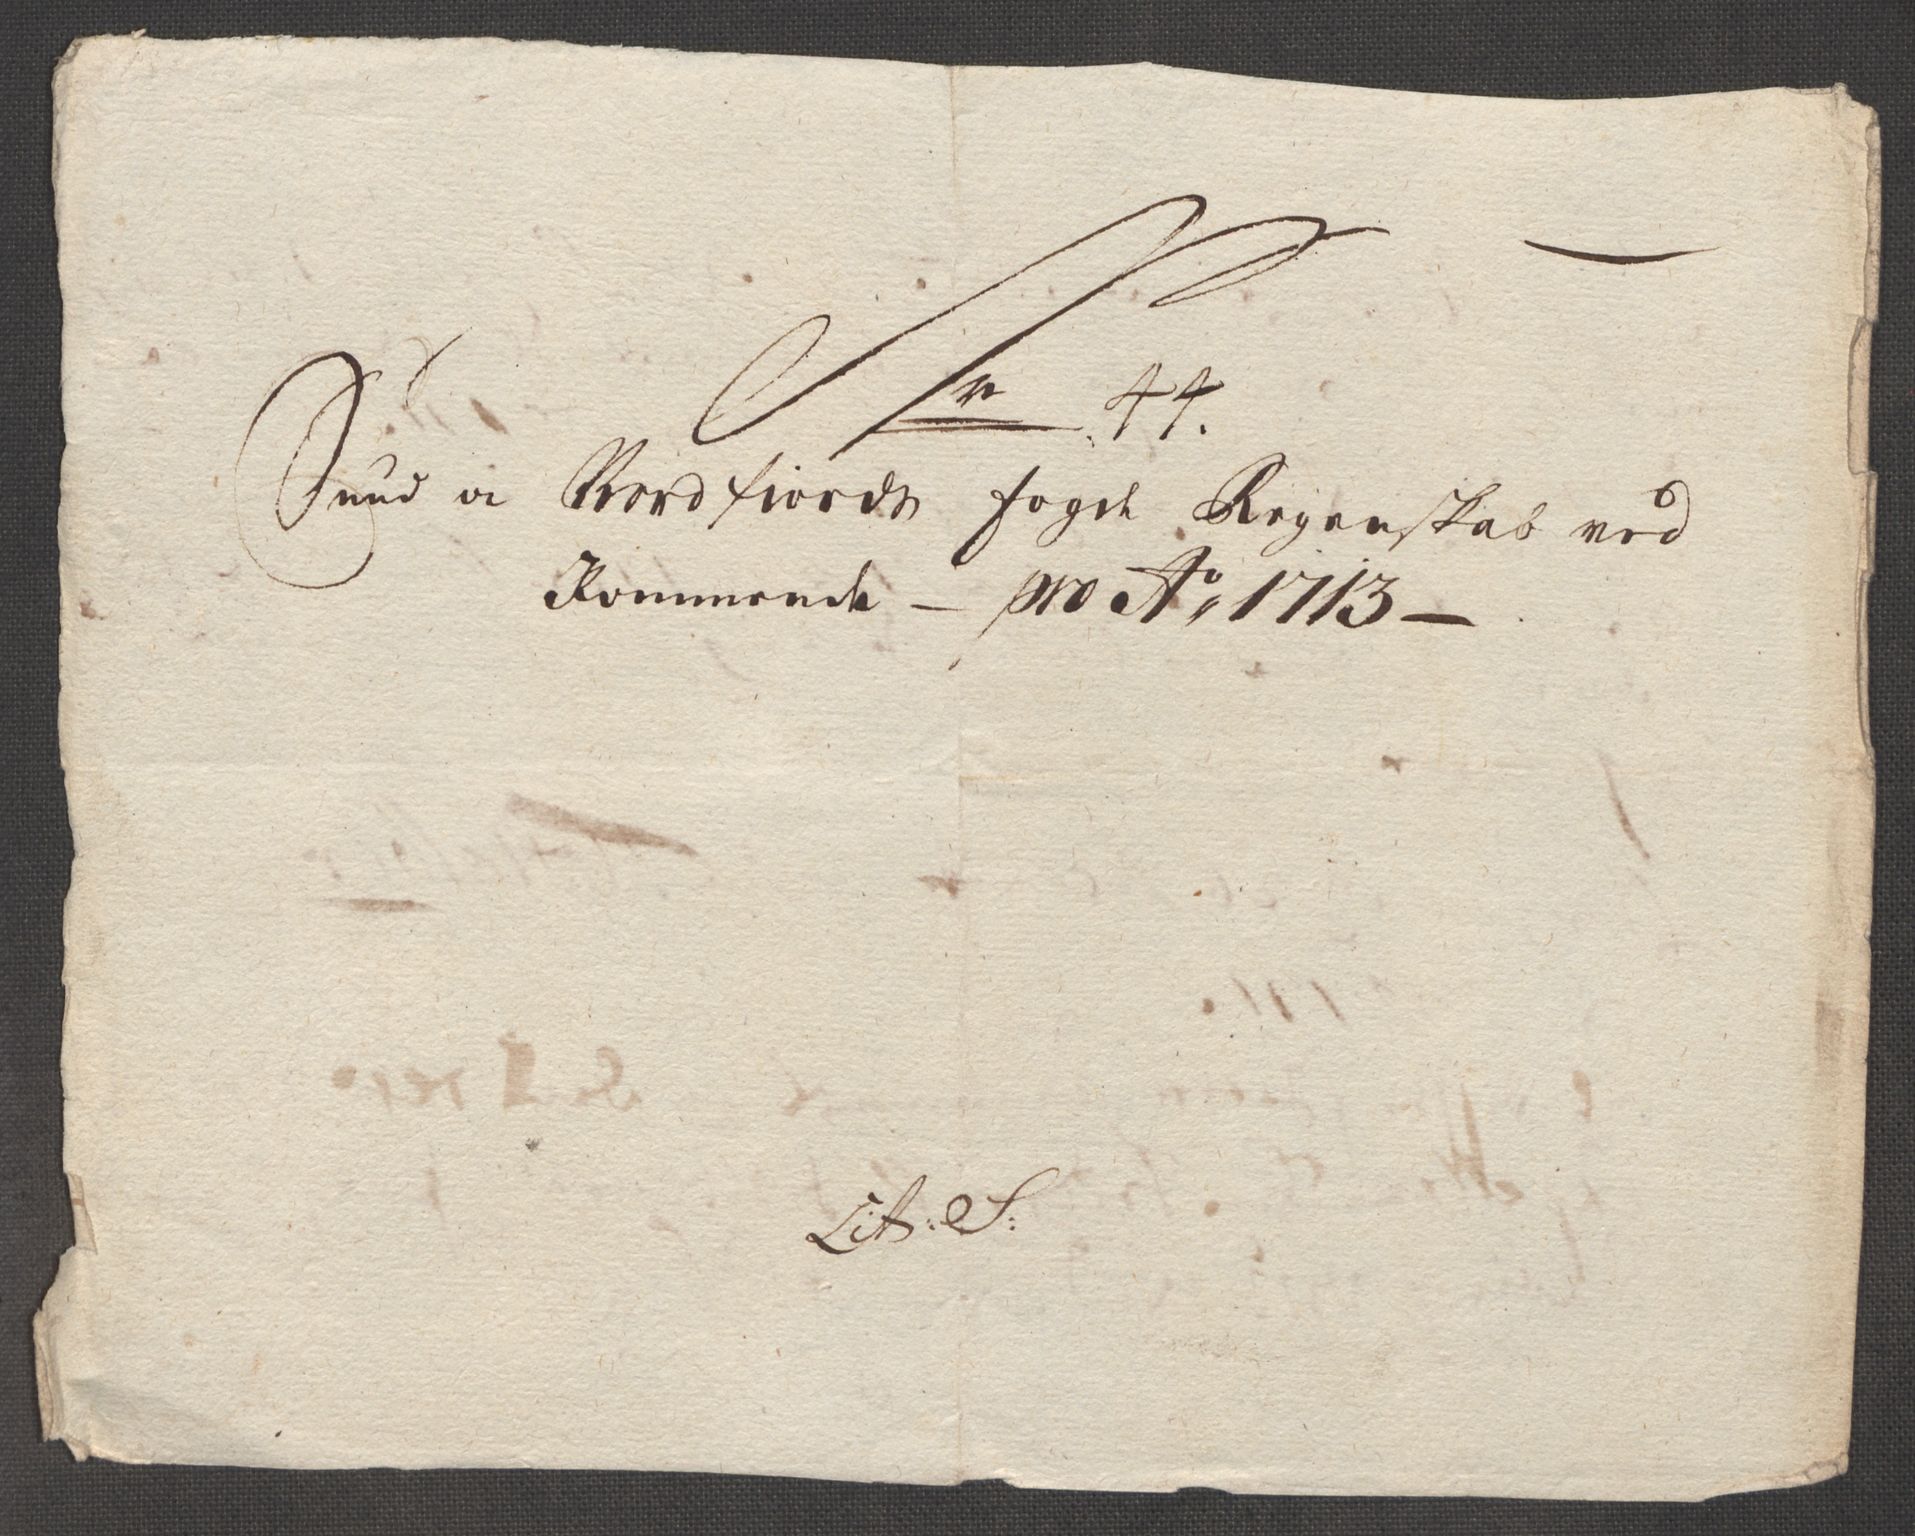 Nr. 44.
Sund oe Nordfiords fogde Regenskab ved
Kommende – pro Ao 1713 –
Lit: S: